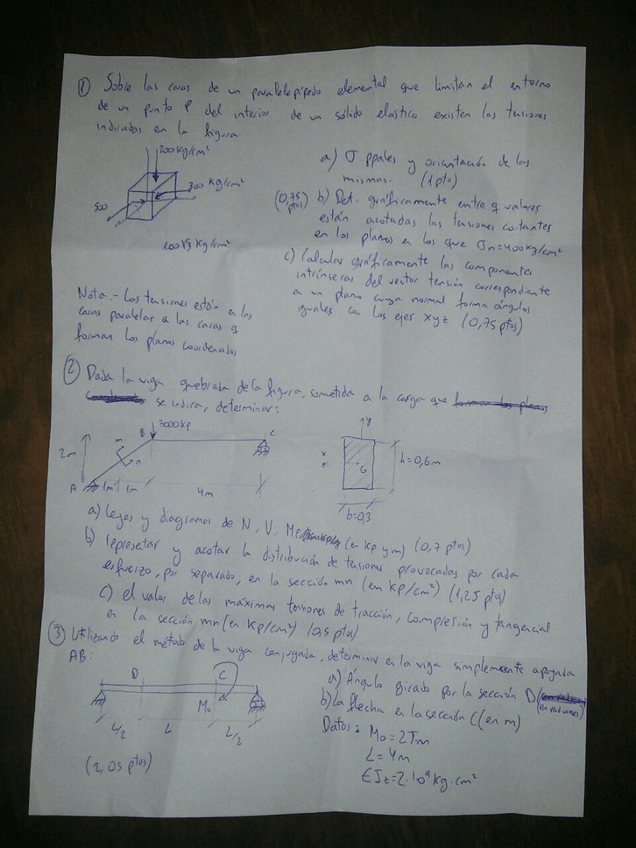 ① Sobre las caras de un paralelepípedo elemental que limitan el entorno
de un punto P del interior de un sólido elástico existen las tensiones
indicadas en la figura
200 kg/cm²
300 kg/cm²
500
100√3 kg/cm²
a) σ ppales y orientación de las
mismas. (1 pto)
(0,75 ptos) b) Det. gráficamente entre q valores
están acotadas las tensiones cortantes
en los planos en los que σn = 400 kg/cm²
c) Calcular gráficamente las componentes
intrínsecas del vector tensión correspondiente
a un plano cuya normal forma ángulos
iguales con los ejes xyz (0,75 ptos)
Nota.- Las tensiones están en las
caras paralelas a las caras q
forman los planos coordenados
② Dada la viga quebrada de la figura, sometida a la carga que
se indica, determinar:
3000 kp
B
C
2m
m
n
A
1m
1m
4m
y
x
G
h=0,6m
b=0,3
a) Leyes y diagramas de N, V, Mf (en kp y m) (0,7 ptos)
b) represetar y acotar la distribución de tensiones provocadas por cada
esfuerzo, por separado, en la sección mn (en kp/cm²) (1,25 ptos)
c) el valor de las máximas tensiones de tracción, compresión y tangencial
en la sección mn (en kp/cm²) (0,5 ptos)
③ Utilizando el método de la viga conjugada, determinar en la viga simplemente apoyada
AB:
D
C
M₀
L/2
L
L/2
(2,05 ptos)
a) Ángulo girado por la sección D (en radianes)
b) La flecha en la sección C (en m)
Datos: M₀ = 2Tm
L = 4m
EJz = 2·10⁹ kg·cm²